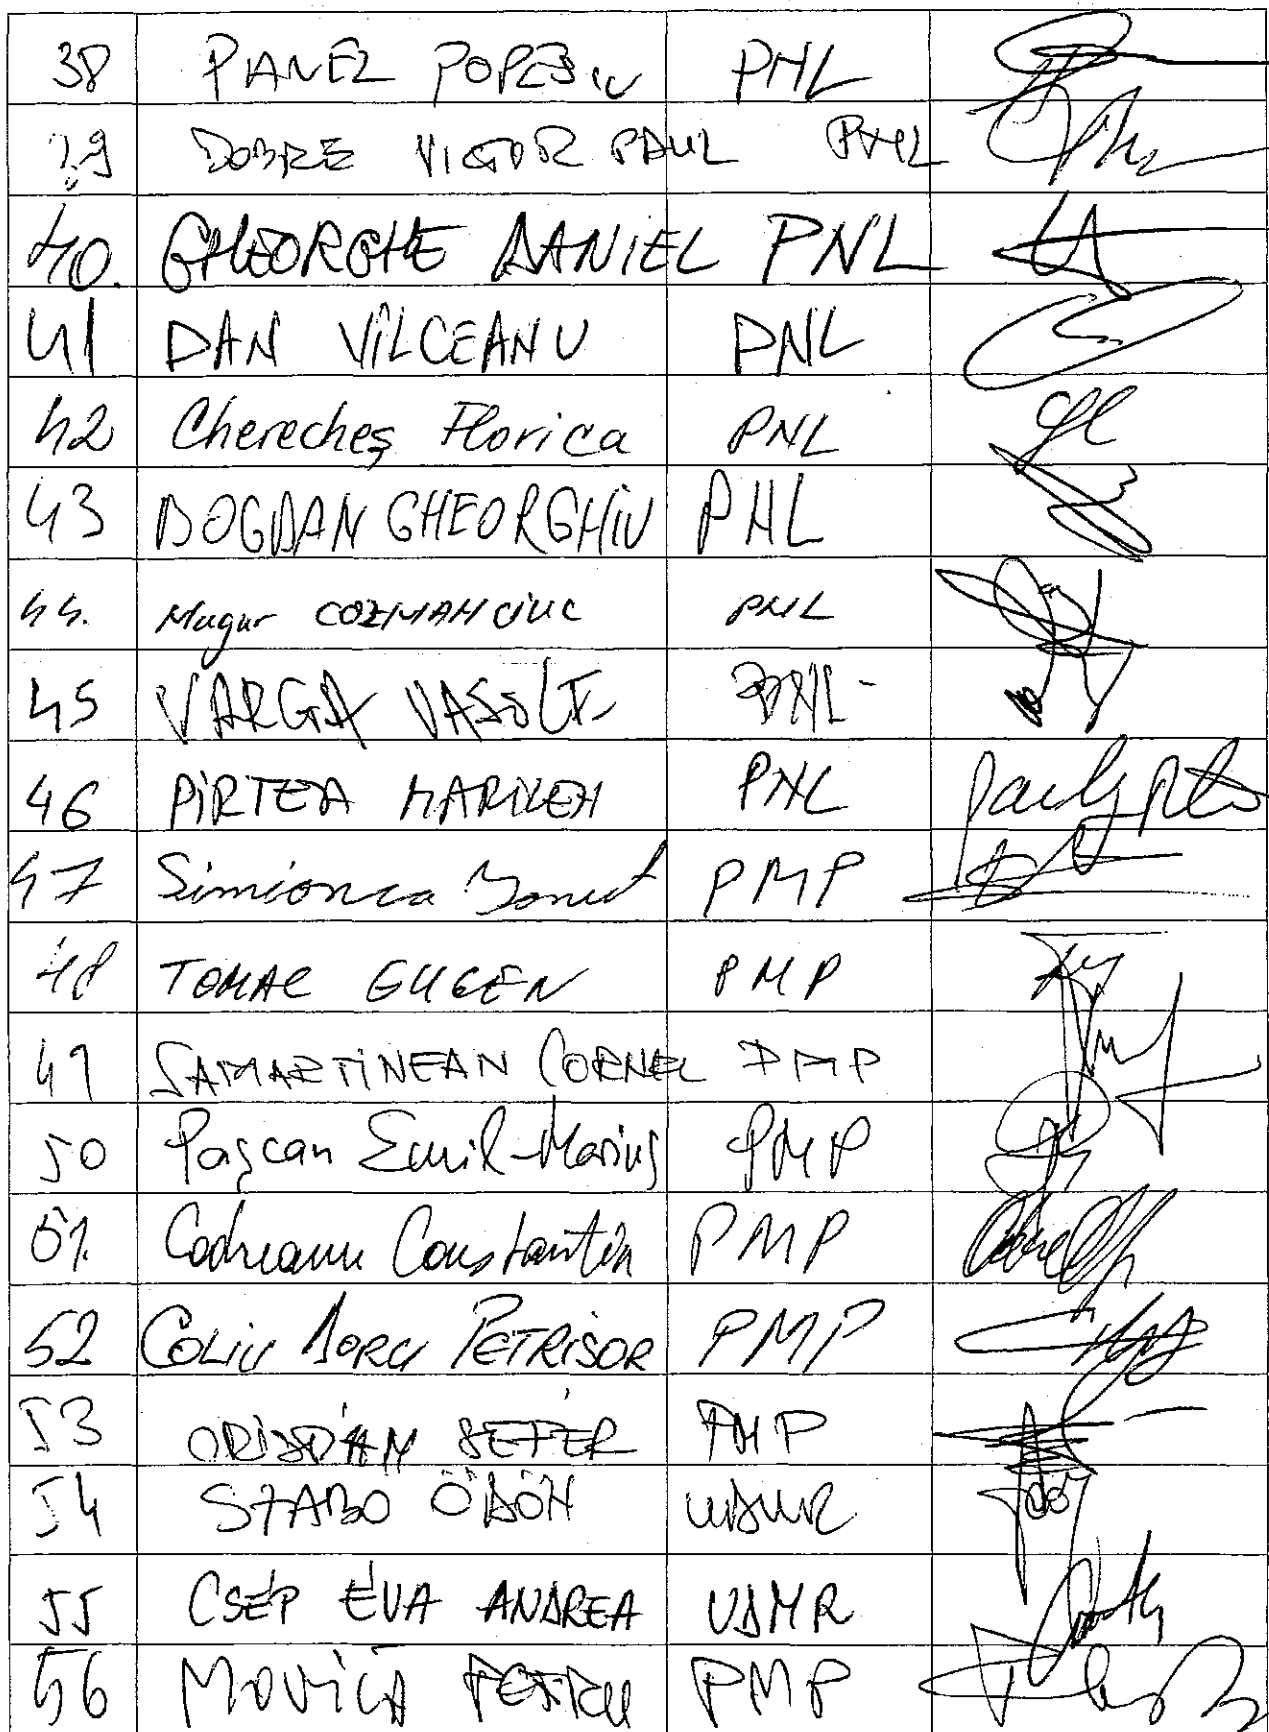 38 PAVEL POPESCU PNL
39 DOBRE VICTOR PAUL PNL
40. GHEORGHE DANIEL PNL
41 DAN VÎLCEANU PNL
42 Cherecheș Florica PNL
43 BOGDAN GHEORGHIU PNL
44. Mugur COZMANCIUC PNL
45 VARGA VASILE PNL
46 PIRTEA MARILEN PNL
47 Simionca Ionut PMP
48 TOMAC EUGEN PMP
49 SAMARTINEAN CORNEL PMP
50 Pașcan Emil-Marius PMP
51. Codreanu Constantin PMP
52 COLIU DORU PETRISOR PMP
53 PMP
54 SZABO ÖDÖN UDMR
55 CSÉP ÉVA ANDREA UDMR
56 MOVILĂ PETRU PMP